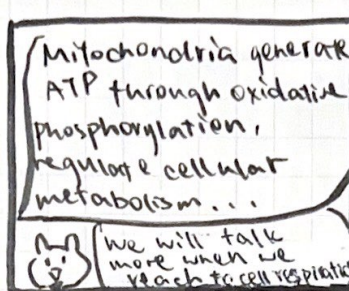 Mitochondria generate
ATP through oxidative
phosphorylation,
regulate cellular
metabolism...
we will talk
more when we
reach to cell respiration